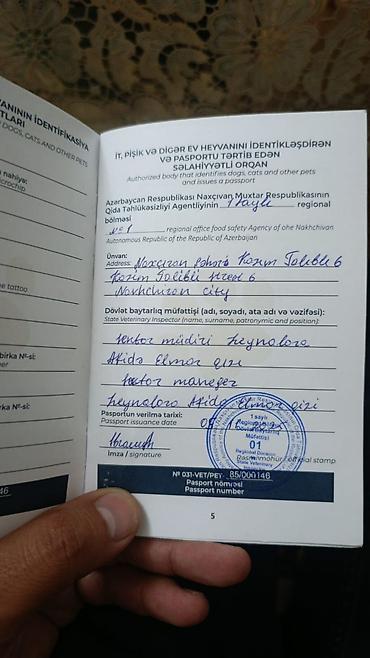 YANININ İDENTİFİKASİYA
DOGS, CATS AND OTHER PETS
microchip
e tattoo
birka №-si:
rka №-si:
146
İT, PİŞİK VƏ DİGƏR EV HEYVANINI İDENTİKLƏŞDİRƏN
VƏ PASPORTU TƏRTİB EDƏN
SƏLAHİYYƏTLİ ORQAN
Authorized body that identifies dogs, cats and other pets
and issues a passport
Azərbaycan Respublikası Naxçıvan Muxtar Respublikasının
Qida Təhlükəsizliyi Agentliyinin 1 saylı regional
bölməsi
№ 1 regional office food safety Agency of ohe Nakhchivan
Autonomous Republic of the Republic of Azerbaijan
Ünvan:
Address: Naxçıvan şəhəri Kazım Talıblı 6
Kazım Talibli street 6
Nakhchivan city
Dövlət baytarlıq müfəttişi (adı, soyadı, ata adı və vəzifəsi):
State Veterinary Inspector (name, surname, patronymic and position):
sektor müdiri Zeynalova
Afidə Elmar qızı
sector maneger
Zeynalova Afidə Elmar qizi
Pasportun verilmə tarixi:
Passport issuance date
İmza / signature
Rəsmi möhür / official stamp
1 saylı
Regional Bölmə
Dövlət baytarlıq
Müfəttişi
01
Regional Division
State Veterinary
№ 031-VET/PET 85/000146
Pasport nömrəsi
Passport number
5